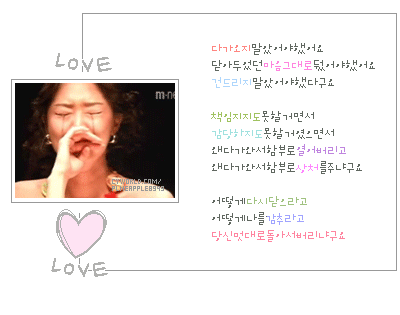 LOVE
다가오지말았어야했어요
닫아두었던마음그대로뒀어야했어요
건드리지말았어야했다구요
m·net
CYWORLD.COM/
책임지지도못할거면서
감당하지도못할거였으면서
왜다가와서함부로열어버리고
왜다가와서함부로상처를주냐구요
어떻게다시닫으라고
어떻게나를감추라고
당신멋대로돌아서버리냐구요
LOVE